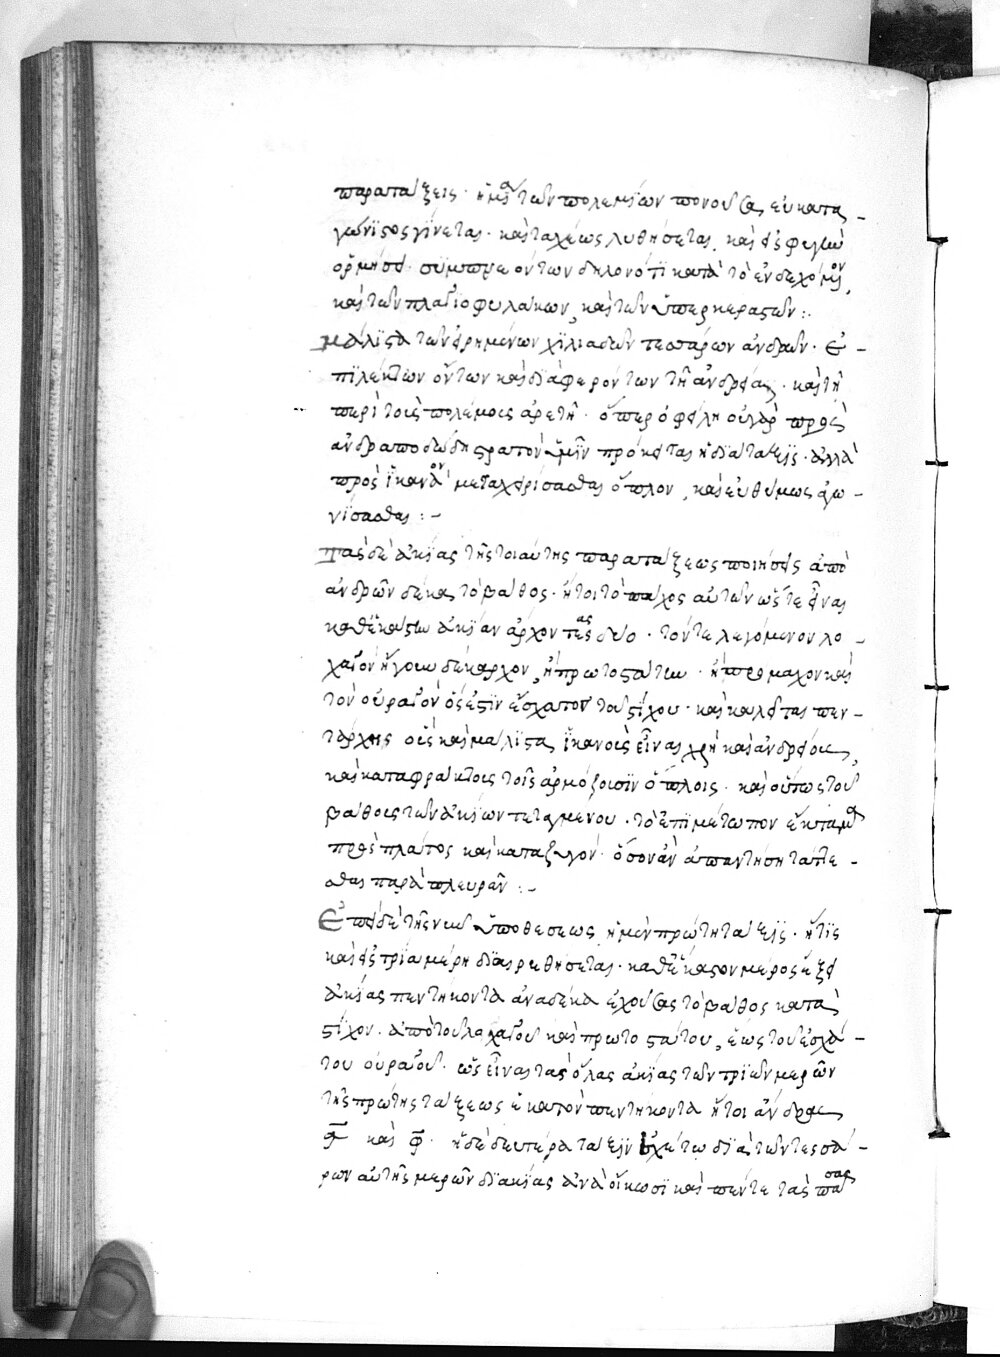 παρατάξεις· ἡ μ(ε)τὰ τῶν πολεμίων πονοῦσα, εὐκατα-
γώνιστος γίνεται· καὶ ταχέως λυθήσεται, καὶ εἰς φυγὴν
ὁρμήσει· συμπνεόντων δηλονότι κατὰ τὸ ἐνδεχόμενον,
καὶ τῶν πλαγιοφυλάκων, καὶ τῶν ὑπερκεραστῶν :.
μάλιστα τῶν εἰρημένων χιλιάδων τεσσάρων ἀνδρῶν· ἐ-
πιλέκτων ὄντων καὶ διαφερόντων τῇ ἀνδρείᾳ· καὶ τῇ
περὶ τοὺς πολέμους ἀρετῇ· ὅπερ ὀφείλει οὐ γὰρ πρὸς
ἀνδραποδώδη στρατὸν ὑμῖν πρόκειται ἡ διάταξις· ἀλλὰ
πρὸς ἱκανὸν μεταχειρίσασθαι ὅπλον, καὶ εὐθύμως ἀγω-
νίσασθαι :-
Τὰς δὲ ἀκίας τῆς τοιαύτης παρατάξεως ποιήσεις ἀπὸ
ἀνδρῶν δέκα τὸ βάθος· ἤτοι τὸ πάχος αὐτῶν ὥστε εἶναι
καθ' ἑκάστην ἀκίαν ἄρχοντας δύο· τόν τε λεγόμενον λο-
χαγὸν ἤγουν δέκαρχον, ἢ πρωτοστάτην· ἢ πρόμαχον καὶ
τὸν οὐραγὸν ὅς ἐστιν ἔσχατον τοῦ στίχου· καὶ καλεῖται πεν-
τάρχης οὓς καὶ μάλιστα ἱκανοὺς εἶναι χρὴ καὶ ἀνδρείους,
καὶ καταφράκτους τοῖς ἁρμόζουσιν ὅπλοις· καὶ οὕτως τοῦ
βάθους τῶν ἀκιῶν τεταγμένου· τὸ ἐπιμέτωπον ἐκτάμα
πρὸς πλάτος καὶ κατὰ ζυγόν· ὅσον ἂν ἀπαντήσῃ τάττε-
σθαι παρὰ πλευράν :-
Ἐπεὶ δὲ τῆς νῦν ὑποθέσεως, ἡ μὲν πρώτη τάξις· ἥτις
καὶ εἰς τρία μέρη διαιρεθήσεται· καθ' ἕκαστον μέρος ἕξει
ἀκίας πεντήκοντα ἀνὰ δέκα ἐχούσας τὸ βάθος κατὰ
στίχον· ἀπὸ τοῦ λοχαγοῦ καὶ πρωτοστάτου, ἕως τοῦ ἐσχά-
του οὐραγοῦ· ὡς εἶναι τὰς ὅλας ἀκίας τῶν τριῶν μερῶν
τῆς πρώτης τάξεως ἑκατὸν πεντήκοντα ἤτοι ἄνδρας
͵α καὶ φ· ἡ δὲ δευτέρα τάξιν ἐχέτω διὰ τῶν τεσσά-
ρων αὐτῆς μερῶν δι' ἀκίας ἀνὰ εἴκοσι καὶ πέντε τὰς πάσας